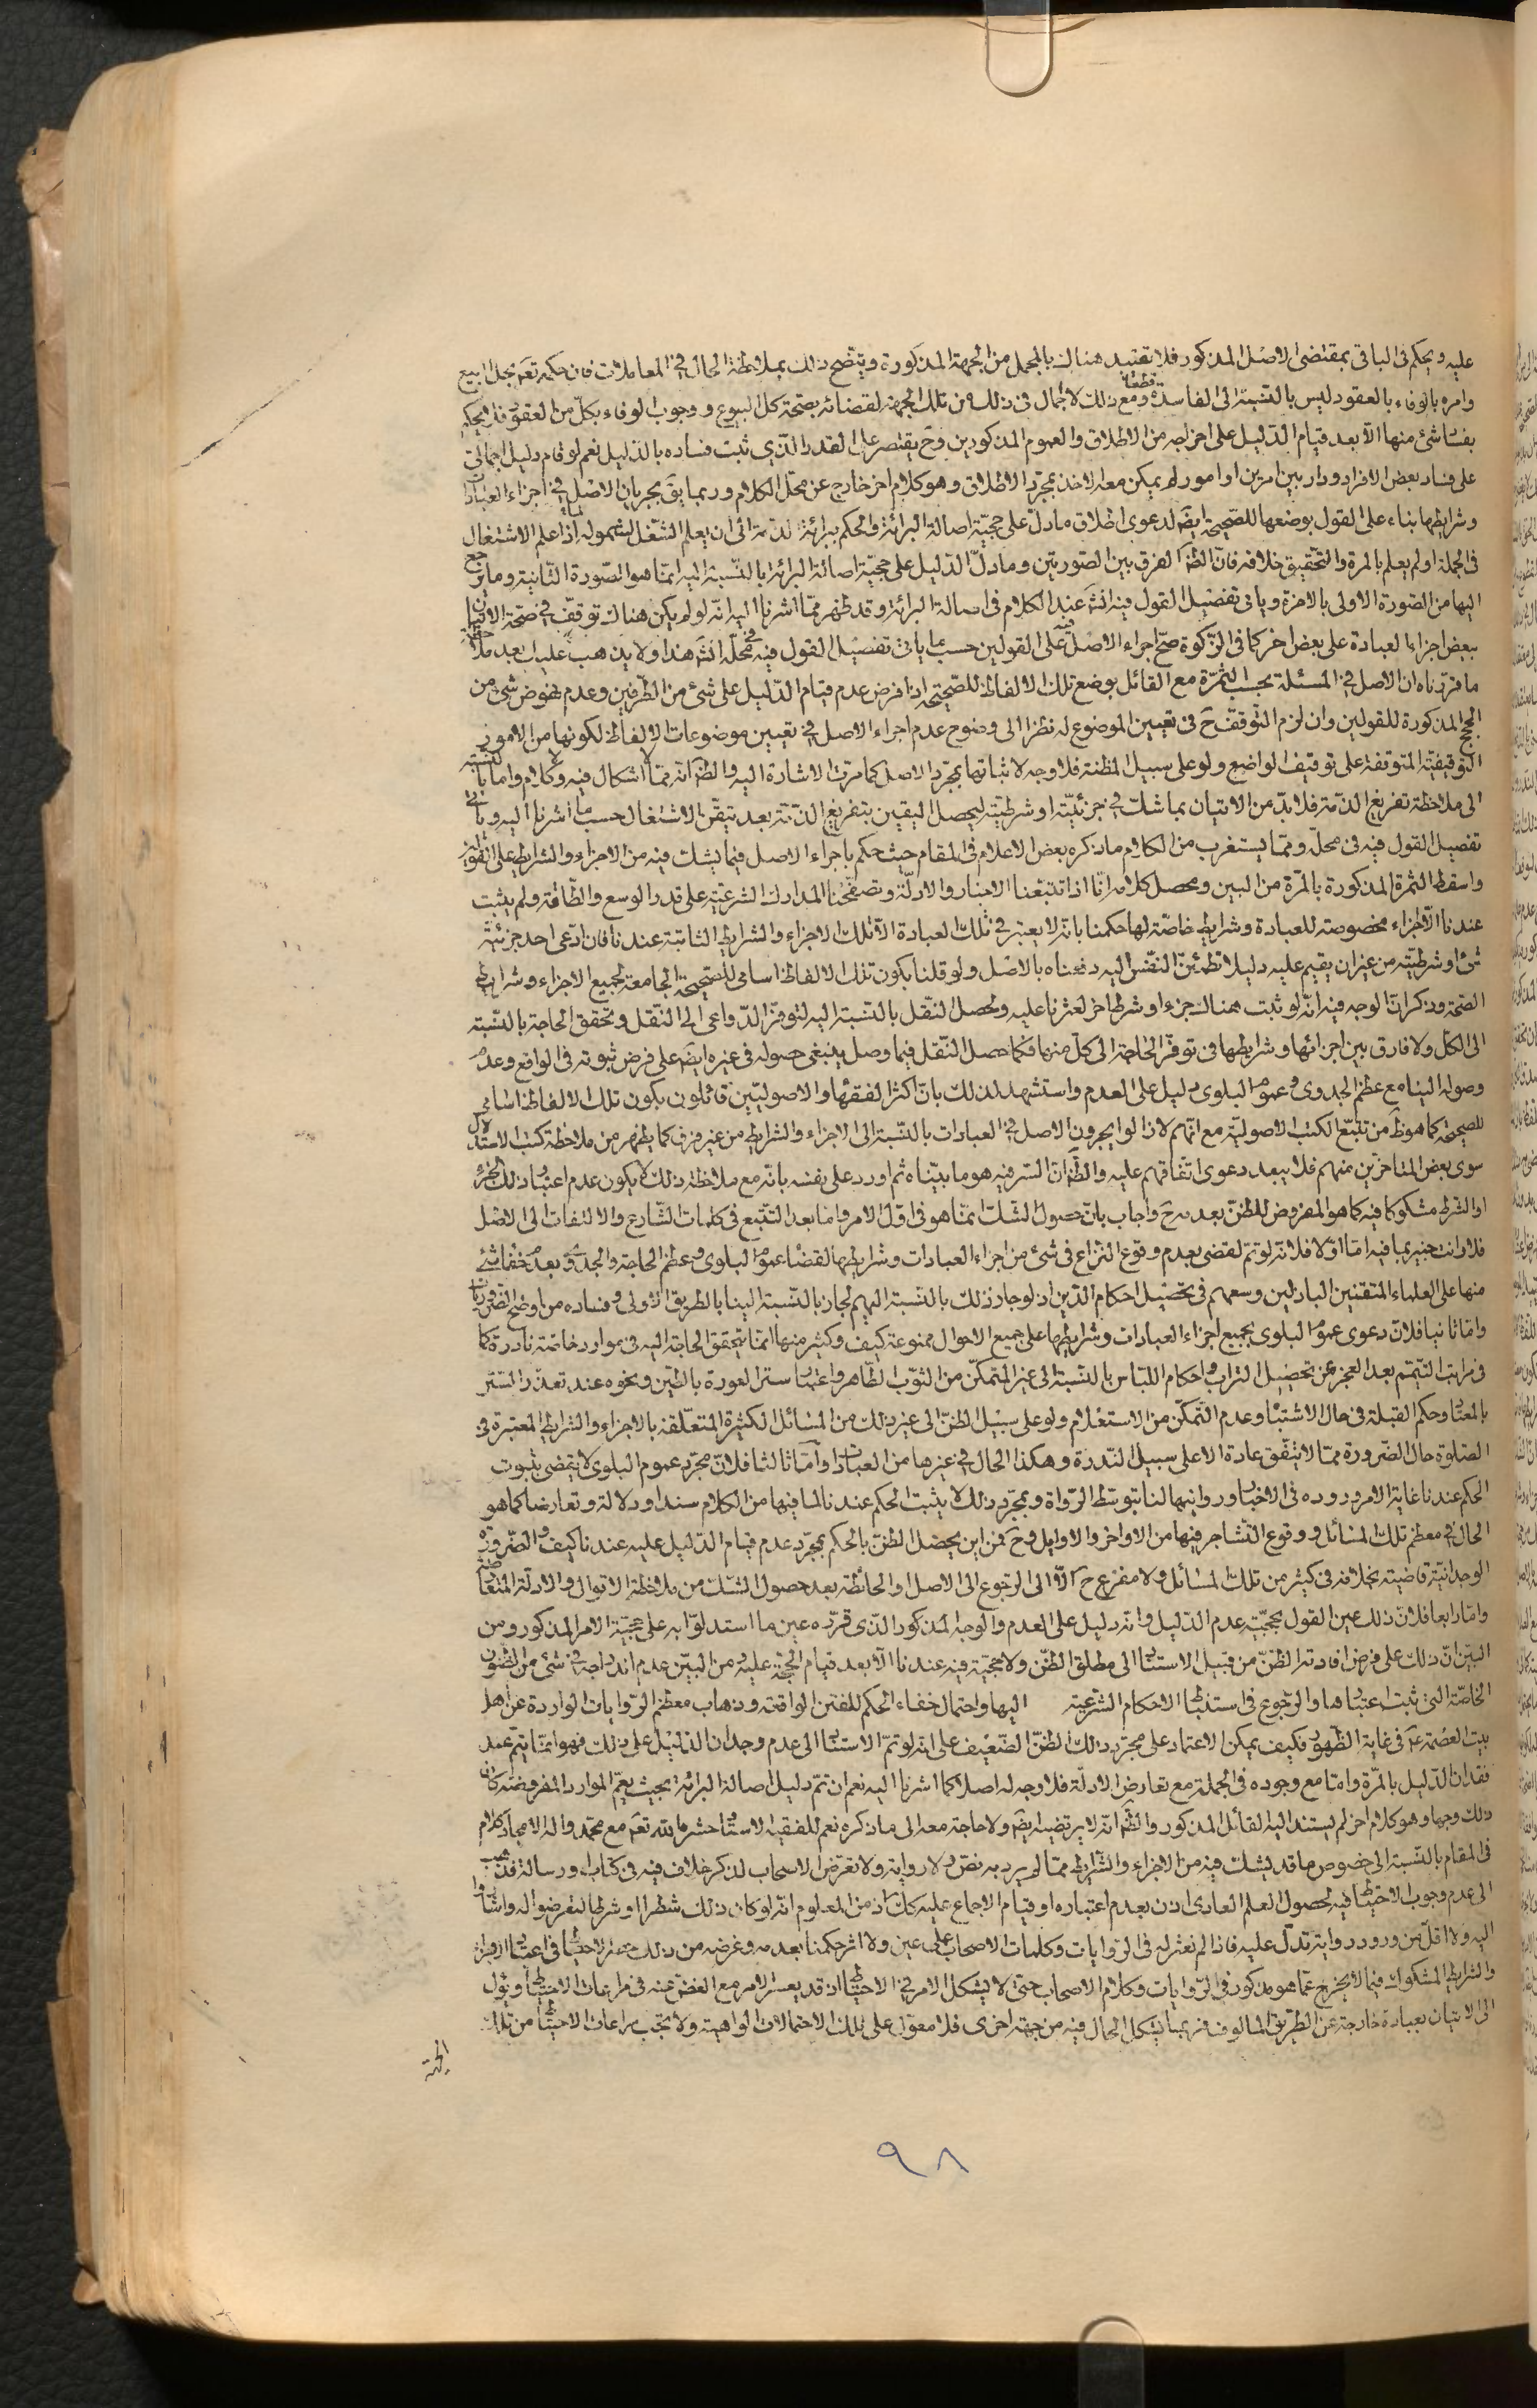 عليه ويحكم فى الباقى بمقتضى الاصل المذكور فلا تقييد هناك بالمجمل من الجهة المذكورة ويتضح ذلك بملاحظة الحال فى المعاملات فان حكمه تعَ بحل البيع
وامره بالوفاء بالعقود ليس بالنسبة الى الفاسدة قطعا ومع ذلك لا اجمال فى ذلك من تلك الجهة لقضائه بصحة كل البيوع ووجوب الوفاء بكل من العقود فلا يحكم
بفساد شئ منها الا بعد قيام الدليل على اخراجه من الاطلاق والعموم المذكورين وح يقتصر على القدر الذى ثبت فساده بالدليل نعم لو قام دليل اجمالى
على فساد بعض الافراد ودار بين امرين او امور لم يمكن معه الاخذ بمجرد الاطلاق وهو كلام اخر خارج عن محل الكلام وربما يقَ بجريان الاصل فى اجزاء العبادات
وشرايطها بناء على القول بوضعها للصحيحة ايضَ لدعوى اطلاق ما دل على حجية اصالة البرائة والحكم ببرائة الذمة الى ان يعلم الشغل لشموله اذا علم الاشتغال
فى الجملة او لم يعلم بالمرة والتحقيق خلافه فان الظَ الفرق بين الصورتين وما دل الدليل على حجية اصالة البرائة بالنسبة اليه انما هو الصورة الثانية وما يرجع
اليها من الصورة الاولى بالاخرة وياتى تفصيل القول فيه انشَ عند الكلام فى اصالة البرائة وقد ظهر مما اشرنا اليه انه لو لم يكن هناك توقف فى صحة الاتيان
ببعض اجزاء العبادة على بعض اخر كما فى الزكوة صح اجراء الاصل فيه على القولين حسب ما ياتى تفصيل القول فيه فى محله انشَ هذا ولا يذهب عليك بعد ملاحظة
ما قررناه ان الاصل فى المسئلة بحسب الثمرة مع القائل بوضع تلك الالفاظ للصحيحة اذا فرض عدم قيام الدليل على شئ من الطرفين وعدم نهوض شئ من
الحجج المذكورة للقولين وان لزم التوقف حَ فى تعيين الموضوع له نظرا الى وضوح عدم اجراء الاصل فى تعيين موضوعات الالفاظ لكونها من الامور
التوقيفية المتوقفة على توقيف الواضع ولو على سبيل المظنة فلا وجه لاثباتها بمجرد الاصل كما مرت الاشارة اليه والظَ انه مما لا اشكال فيه ولا كلام واما بالنسبة
الى ملاحظة تفريغ الذمة فلا بد من الاتيان بما شك فى جزئيته او شرطيته ليحصل اليقين بتفريغ الذمة بعد تيقن الاشتغال حسب ما اشرنا اليه وياتى
تفصيل القول فيه فى محله ومما يستغرب من الكلام ما ذكره بعض الاعلام فى المقام حيث حكم باجراء الاصل فيما يشك فيه من الاجزاء والشرايط على القولين
واسقط الثمرة المذكورة بالمرة من البين ومحصل كلامه انا اذا تتبعنا الاخبار والادلة وتصفحنا المدارك الشرعية على قدر الوسع والطاقة ولم يثبت
عندنا الا اجزاء مخصوصة للعبادة وشرايط خاصة لها حكمنا بانه لا يعتبر فى تلك العبادة الا تلك الاجزاء والشرايط الثابتة عندنا فان ادعى احد جزئية
شئ او شرطيته من غير ان يقيم عليه دليلا تطمئن النفس اليه دفعناه بالاصل ولو قلنا بكون تلك الالفاظ اسامى للصحيحة الجامعة لجميع الاجزاء وشرايط
الصحة وذكر ان الوجه فيه انه لو ثبت هناك جزء او شرط اخر لعثرنا عليه ولحصل النقل بالنسبة اليه لتوفر الدواعى الى النقل وتحقق الحاجة بالنسبة
الى الكل ولا فارق بين اجزائها وشرايطها فى توفر الحاجة الى كل منها فكما حصل النقل فيما وصل ينبغى حصوله فى غيره ايضَ على فرض ثبوته فى الواقع وعدم
وصوله الينا مع عظم الجدوى وعموم البلوى دليل على العدم واستشهد لذلك بان اكثر الفقهاء والاصوليين قائلون بكون تلك الالفاظ اسامى
للصحيحة كما هو ظَ من تتبع الكتب الاصولية مع انهم لا زالوا يجرون الاصل فى العبادات بالنسبة الى الاجزاء والشرايط من غير فرق كما يظهر من ملاحظة كتب الاستدلال
سوى بعض المتاخرين منهم فلا يبعد دعوى اتفاقهم عليه والظَ ان السر فيه هو ما بيناه ثم اورد على نفسه بانه مع ملاحظة ذلك لا يكون عدم اعتبار ذلك الجزء
او الشرط مشكوكا فيه كما هو المفروض للظن بعدمه حَ واجاب بان حصول الشك انما هو فى اول الامر واما بعد التتبع فى كلمات الشارع والالتفات الى الاصل
فلا وانت خبير بما فيه اما اولا فلانه لو تم لقضى بعدم وقوع النزاع فى شئ من اجزاء العبادات وشرايطها لقضاء عموم البلوى وعظم الحاجة والجدوى بعدم خفاء شئ
منها على العلماء المتقنين الباذلين وسعهم فى تحصيل احكام الدين اذ لو جاز ذلك بالنسبة اليهم لجاز بالنسبة الينا بالطريق الاولى وفساده من اوضح الضروريات
واما ثانيا فلان دعوى عموم البلوى بجميع اجزاء العبادات وشرايطها على جميع الاحوال ممنوعة كيف وكثير منها انما يتحقق الحاجة اليه فى موارد خاصة نادرة كما
فى مراتب التيمم بعد العجز عن تحصيل التراب واحكام اللباس بالنسبة الى غير المتمكن من الثوب الطاهر واعتبار ستر العورة بالطين ونحوه عند تعذر الستر
بالمعتاد وحكم القبلة فى حال الاشتباه وعدم التمكن من الاستعلام ولو على سبيل الظن الى غير ذلك من المسائل الكثيرة المتعلقة بالاجزاء والشرايط المعتبرة فى
الصلوة حال الضرورة مما لا يتفق عادة الا على سبيل الندرة وهكذا الحال فى غيرها من العبادات واما ثالثا فلان مجرد عموم البلوى لا يقضى بثبوت
الحكم عندنا غاية الامر وروده فى الاخبار وروايتها لنا بتوسط الرواة وبمجرد ذلك لا يثبت الحكم عندنا لما فيها من الكلام سندا ودلالة وتعارضا كما هو
الحال فى معظم تلك المسائل ووقوع التشاجر فيها من الاواخر والاوايل وحَ فمن اين يحصل الظن بالحكم بمجرد عدم قيام الدليل عليه عندنا كيف والضرورة
الوجدانية قاضية بخلافه فى كثير من تلك المسائل ولا مفزع حَ الا الى الرجوع الى الاصل او الحائطة بعد حصول الشك من ملاحظة الاقوال والادلة المتعارضة
واما رابعا فلان ذلك عين القول بحجية عدم الدليل وانه دليل على العدم والوجه المذكور الذى قرره عين ما استدلوا به على حجية الامر المذكور ومن
البين ان ذلك على فرض افادته الظن من قبيل الاستناد الى مطلق الظن ولا حجية فيه عندنا الا بعد قيام الحجة عليه ومن البين عدم اندراجه فى شئ من الظنون
الخاصة التى ثبت اعتبارها والرجوع فى استنباط الاحكام الشرعية اليها واحتمال خفاء الحكم للفتن الواقعة وذهاب معظم الروايات الواردة عن اهل
بيت العصمة عَ فى غاية الظهور فكيف يمكن الاعتماد على مجرد ذلك الظن الضعيف على انه لو تم الاستناد الى عدم وجدان الدليل على ذلك فهو انما يتم عند
فقدان الدليل بالمرة واما مع وجوده فى الجملة مع تعارض الادلة فلا وجه له اصلا كما اشرنا اليه نعم ان تم دليل اصالة البرائة بحيث يعم الموارد المفروضة كان
ذلك وجها وهو كلام اخر لم يستند اليه القائل المذكور والظَ انه لا يرتضيه ايضَ ولا حاجة معه الى ما ذكره نعم للفقيه الاستاد حشره الله تعَ مع محمد واله الامجاد كلام
فى المقام بالنسبة الى خصوص ما قد يشك فيه من الاجزاء والشرايط مما لم يرد به نص ولا رواية ولا تعرض الاصحاب لذكر خلاف فيه فى كتاب او رسالة فذهب
الى عدم وجوب الاحتياط فيه لحصول العلم العادى اذن بعدم اعتباره او قيام الاجماع عليه كك اذ من المعلوم انه لو كان ذلك شطرا او شرطا لتعرضوا له واشاروا
اليه ولا اقل من ورود رواية تدل عليه فاذا لم نعثر له فى الروايات وكلمات الاصحاب على عين ولا اثر حكمنا بعدمه وغرضه من ذلك الاحتياط فى اعتبار الاجزاء
والشرايط المشكوك فيها لا يخرج عما هو مذكور فى الروايات وكلام الاصحاب حتى لا يشكل الامر فى الاحتياط اذ قد يعسر الامر مع الغض عنه فى مراعات الاحتياط ويؤل
الى الاتيان بعبادة خارجة عن الطريق المالوف فربما يشكل الحال فيه من جهة اخرى فلا معول على تلك الاحتمالات الواهية ولا يجب مراعات الاحتياط من تلك
الجهة
٩٨